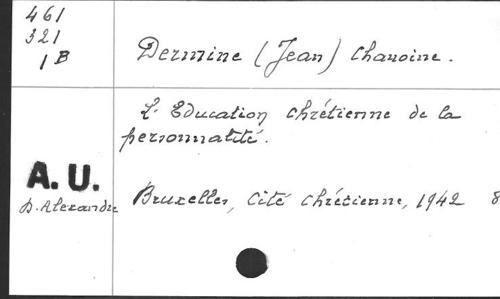 461
321
1 B
Dermine (Jean) chanoine.
L'Education chrétienne de la
personnalité.
A. U.
D. Alexandre
Bruxelles, Cité chrétienne, 1942 8